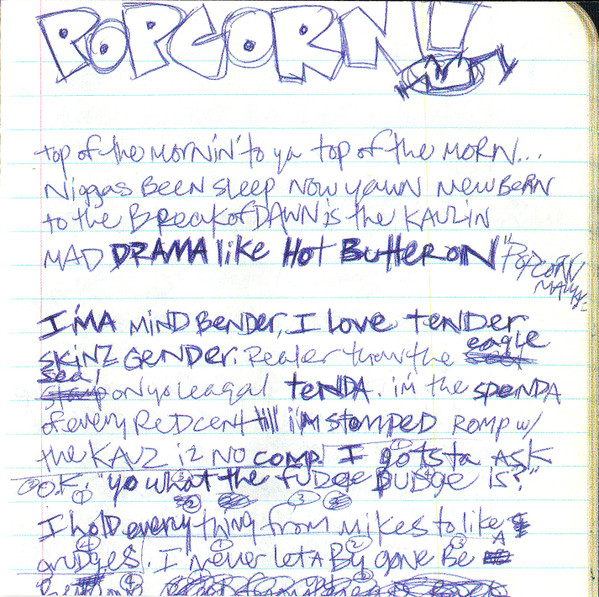 POPCORN!
top of the MORNIN' to ya top of the MORN...
Niggas BEEN sleep NOW YAWN NEW BERN
to the BreakofDAWN is the KAUZIN
MAD DRAMA like HOT BUtteR ON "POPCORN
I'MA MIND BENDER, I love TENDER
eagle
SKINZ GENDER. Realer than the
seal
on yo leagal TENDA. i'm the SPENDA
of every ReDcent till i'm stOMPED ROMP w/
the KAUZ iz NO COMP. I gotsta ASK
OK. "yo what the fudge Budge is?"
I hold everything from mikes to like
grudges. I never let A By gone Be A